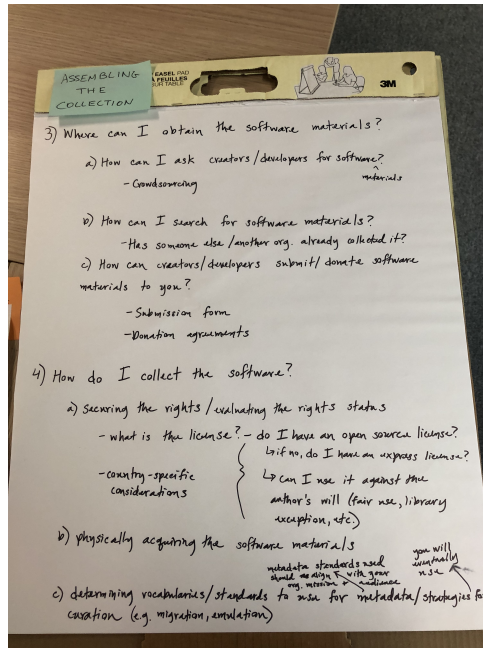 ASSEMBLING
THE
COLLECTION
EASEL PAD
À FEUILLES
OUR TABLE
3M
3) Where can I obtain the software materials?
a) How can I ask creators/developers for software?
^
materials
- Crowdsourcing
b) How can I search for software materials?
- Has someone else/another org. already collected it?
c) How can creators/developers submit/donate software
materials to you?
- Submission form
- Donation agreements
4) How do I collect the software?
a) securing the rights/evaluating the rights status
- what is the license? - do I have an open source license?
↳ if no, do I have an express license?
- country-specific
considerations
↳ can I use it against the
author's will (fair use, library
exception, etc.)
b) physically acquiring the software materials
metadata standards used
should align with your
org. mission + audience
you will
eventually
use
c) determining vocabularies/standards to use for metadata/strategies fo
curation (e.g. migration, emulation)